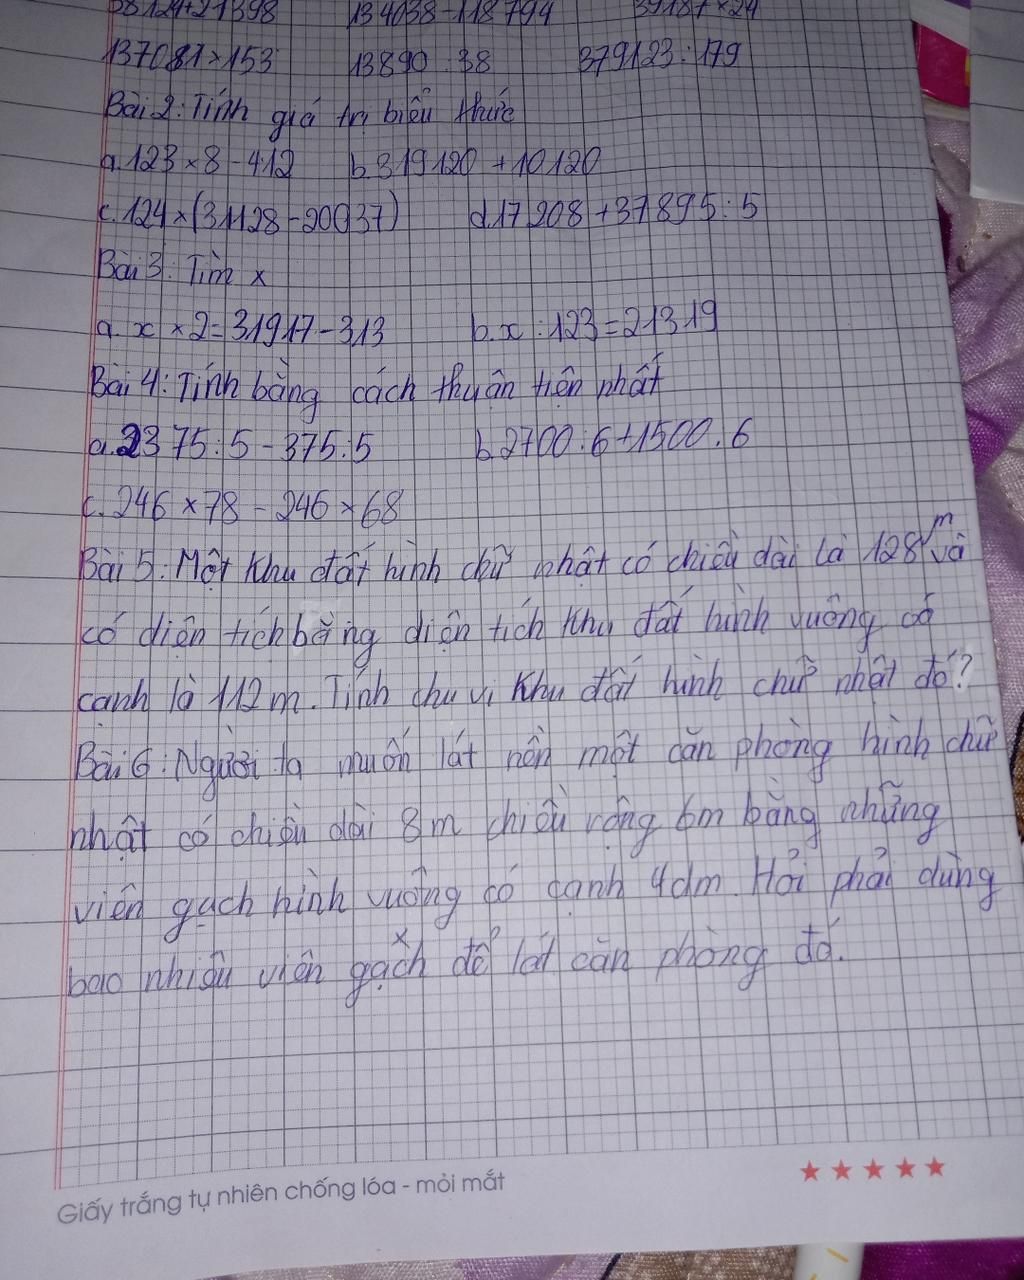 134038-118794 39187×24
137081×153 13890:38 379123:179
Bài 2: Tính giá trị biểu thức
a.123×8-412 b.319120+10120
c.124×(31128-20037) d.17208+37895:5
Bài 3: Tìm x
a. x×2=31917-313 b.x:123=21319
Bài 4: Tính bằng cách thuận tiện nhất
a.2375:5-375:5 b.2700:6+1500:6
c.246×78-246×68
Bài 5: Một khu đất hình chữ nhật có chiều dài là 128m và
có diện tích bằng diện tích khu đất hình vuông có
cạnh là 112m. Tính chu vi khu đất hình chữ nhật đó?
Bài 6: Người ta muốn lát nền một căn phòng hình chữ
nhật có chiều dài 8m chiều rộng 6m bằng những
viên gạch hình vuông có cạnh 4dm. Hỏi phải dùng
bao nhiêu viên gạch để lát căn phòng đó.
Giấy trắng tự nhiên chống lóa - mỏi mắt